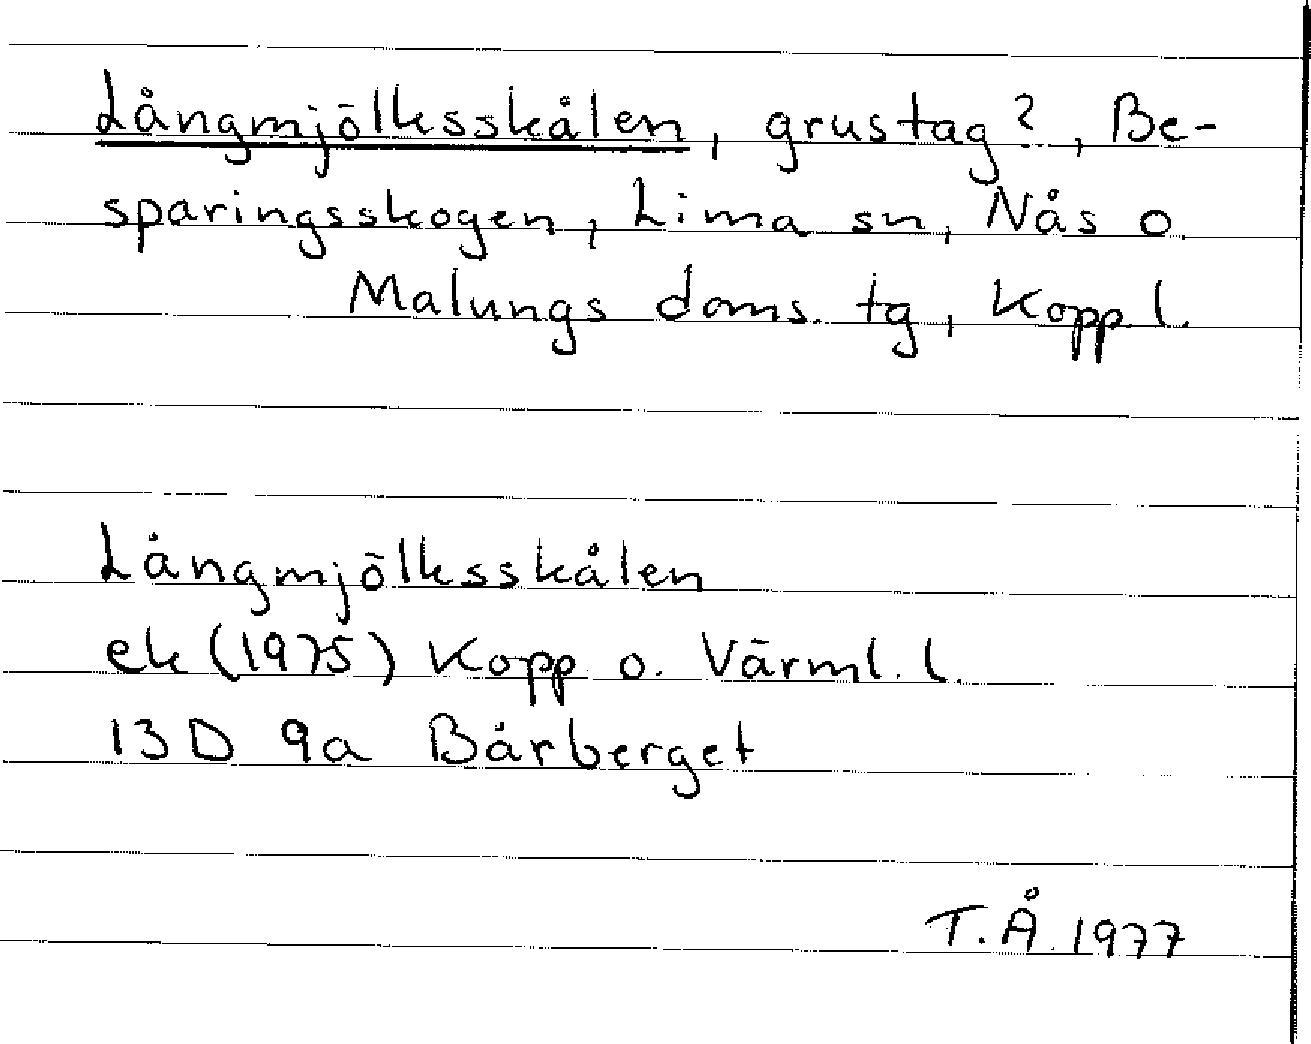 Långmjölksskålen, grustag?, Be-
sparingsskogen, Lima sn, Nås o
Malungs doms. tg, Kopp. l.
Långmjölksskålen
ek (1975) Kopp o. Värml. l.
13 D 9a Bårberget
T.Å. 1977